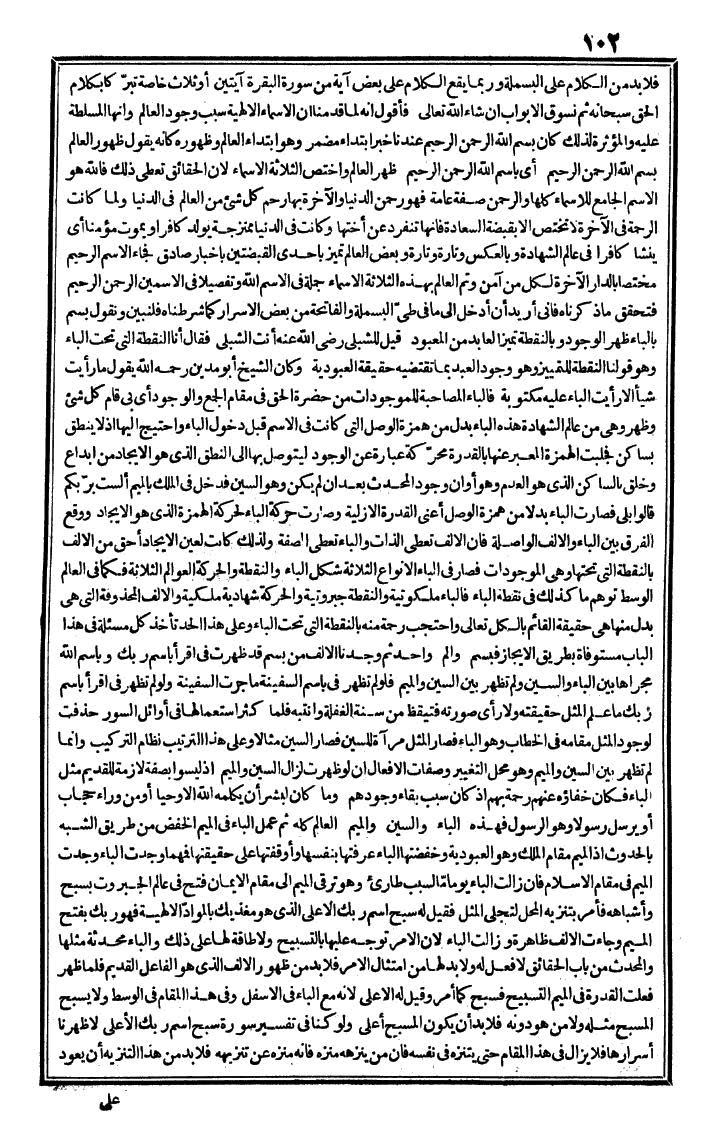 ١٠٢
فلا بد من الكلام على البسملة وربما يقع الكلام على بعض آية من سورة البقرة آيتين أو ثلاث خاصة تبرّكا بكلام
الحق سبحانه ثم نسوق الابواب ان شاء الله تعالى فأقول انه لما قدمنا ان الاسماء الالهية سبب وجود العالم وانها المسلطة
عليه والمؤثرة لذلك كان بسم الله الرحمن الرحيم عندنا خبر ابتداء مضمر وهو ابتداء العالم وظهوره كانه يقول ظهور العالم
بسم الله الرحمن الرحيم أى باسم الله الرحمن الرحيم ظهر العالم واختص الثلاثة الاسماء لان الحقائق تعطى ذلك فالله هو
الاسم الجامع للاسماء كلها والرحمن صفة عامة فهو رحمن الدنيا والآخرة بها رحم كل شئ من العالم فى الدنيا ولما كانت
الرحمة فى الآخرة لا تختص الا بقبضة السعادة فانها تنفرد عن أختها وكانت فى الدنيا ممتزجة يولد كافرا ويموت مؤمنا أى
ينشأ كافرا فى عالم الشهادة وبالعكس وتارة وتارة وبعض العالم تميز باحدى القبضتين باخبار صادق فجاء الاسم الرحيم
مختصا بالدار الآخرة لكل من آمن وتم العالم بهذه الثلاثة الاسماء جملة فى الاسم الله وتفصيلا فى الاسمين الرحمن الرحيم
فتحقق ما ذكرناه فانى أريد أن أدخل الى ما فى طىّ البسملة والفاتحة من بعض الاسرار كما شرطناه فلنبين ونقول بسم
بالباء ظهر الوجود وبالنقطة تميز العابد من المعبود قيل للشبلى رضى الله عنه أنت الشبلى فقال أنا النقطة التى تحت الباء
وهو قولنا النقطة للتمييز وهو وجود العبد بما تقتضيه حقيقة العبودية وكان الشيخ أبو مدين رحمه الله يقول ما رأيت
شيأ الا رأيت الباء عليه مكتوبة فالباء المصاحبة للموجودات من حضرة الحق فى مقام الجمع والوجود أى بى قام كل شئ
وظهر وهى من عالم الشهادة هذه الباء بدل من همزة الوصل التى كانت فى الاسم قبل دخول الباء واحتيج اليها اذ لا ينطق
بساكن فجلبت الهمزة المعبر عنها بالقدرة محرّكة عبارة عن الوجود ليتوصل بها الى النطق الذى هو الايجاد من ابداع
وخلق بالساكن الذى هو العدم وهو أوان وجود المحدث بعد ان لم يكن وهو السين فدخل فى الملك بالميم ألست بربكم
قالوا بلى فصارت الباء بدلا من همزة الوصل أعنى القدرة الازلية وصارت حركة الباء لحركة الهمزة الذى هو الايجاد ووقع
الفرق بين الباء والالف الواصلة فان الالف تعطى الذات والباء تعطى الصفة ولذلك كانت لعين الايجاد أحق من الالف
بالنقطة التى تحتها وهى الموجودات فصار فى الباء الانواع الثلاثة شكل الباء والنقطة والحركة العوالم الثلاثة فكما فى العالم
الوسط توهم ما كذلك فى نقطة الباء فالباء ملكوتية والنقطة جبروتية والحركة شهادية ملكية والالف المحذوفة التى هى
بدل منها هى حقيقة القائم بالكل تعالى واحتجب رحمة منه بالنقطة التى تحت الباء وعلى هذا الحد تأخذ كل مسئلة فى هذا
الباب مستوفاة بطريق الايجاز فبسم والم واحد ثم وجدنا الالف من بسم قد ظهرت فى اقرأ باسم ربك وباسم الله
مجراها بين الباء والسين ولم تظهر بين السين والميم فلو لم تظهر فى باسم السفينة ما جرت السفينة ولو لم تظهر فى اقرأ باسم
ربك ما علم المثل حقيقته ولا رأى صورته فتيقظ من سنة الغفلة وانتبه فلما كثر استعمالها فى أوائل السور حذفت
لوجود المثل مقامه فى الخطاب وهو الباء فصار المثل مرآة للسين فصار السين مثالا وعلى هذا الترتيب نظام التركيب وانما
لم تظهر بين السين والميم وهو محل التغيير وصفات الافعال ان لو ظهرت لزال السين والميم اذ ليسوا بصفة لازمة للقديم مثل
الباء فكان خفاؤه عنهم رحمة بهم اذ كان سبب بقاء وجودهم وما كان لبشر أن يكلمه الله الا وحيا أو من وراء حجاب
أو يرسل رسولا وهو الرسول فهذه الباء والسين والميم العالم كله ثم عمل الباء فى الميم الخفض من طريق الشبه
بالحدوث اذ الميم مقام الملك وهو العبودية وخفضتها الباء عرفتها بنفسها وأوقفتها على حقيقتها فهما وجدت الباء وجدت
الميم فى مقام الاسلام فان زالت الباء يوما ما لسبب طارئ وهو ترقى الميم الى مقام الايمان فتح فى عالم الجبروت بسبح
وأشباهه فأمر بتنزيه المحل لتجلى المثل فقيل له سبح اسم ربك الاعلى الذى هو مغذيك بالموادّ الالهية فهو ربك بفتح
الميم وجاءت الالف ظاهرة وزالت الباء لان الامر توجه عليها بالتسبيح ولا طاقة لها على ذلك والباء محدثة مثلها
والمحدث من باب الحقائق لا فعل له ولا بد لها من امتثال الامر فلا بد من ظهور الالف الذى هو الفاعل القديم فلما ظهر
فعلت القدرة فى الميم التسبيح فسبح كما أمر وقيل له الاعلى لانه مع الباء فى الاسفل وفى هذا المقام فى الوسط ولا يسبح
المسبح مثله ولا من هو دونه فلا بد أن يكون المسبح أعلى ولو كنا فى تفسير سورة سبح اسم ربك الأعلى لاظهرنا
أسرارها فلا يزال فى هذا المقام حتى يتنزه فى نفسه فان من ينزهه منزه فانه منزه عن تنزيهه فلا بد من هذا التنزيه أن يعود
على